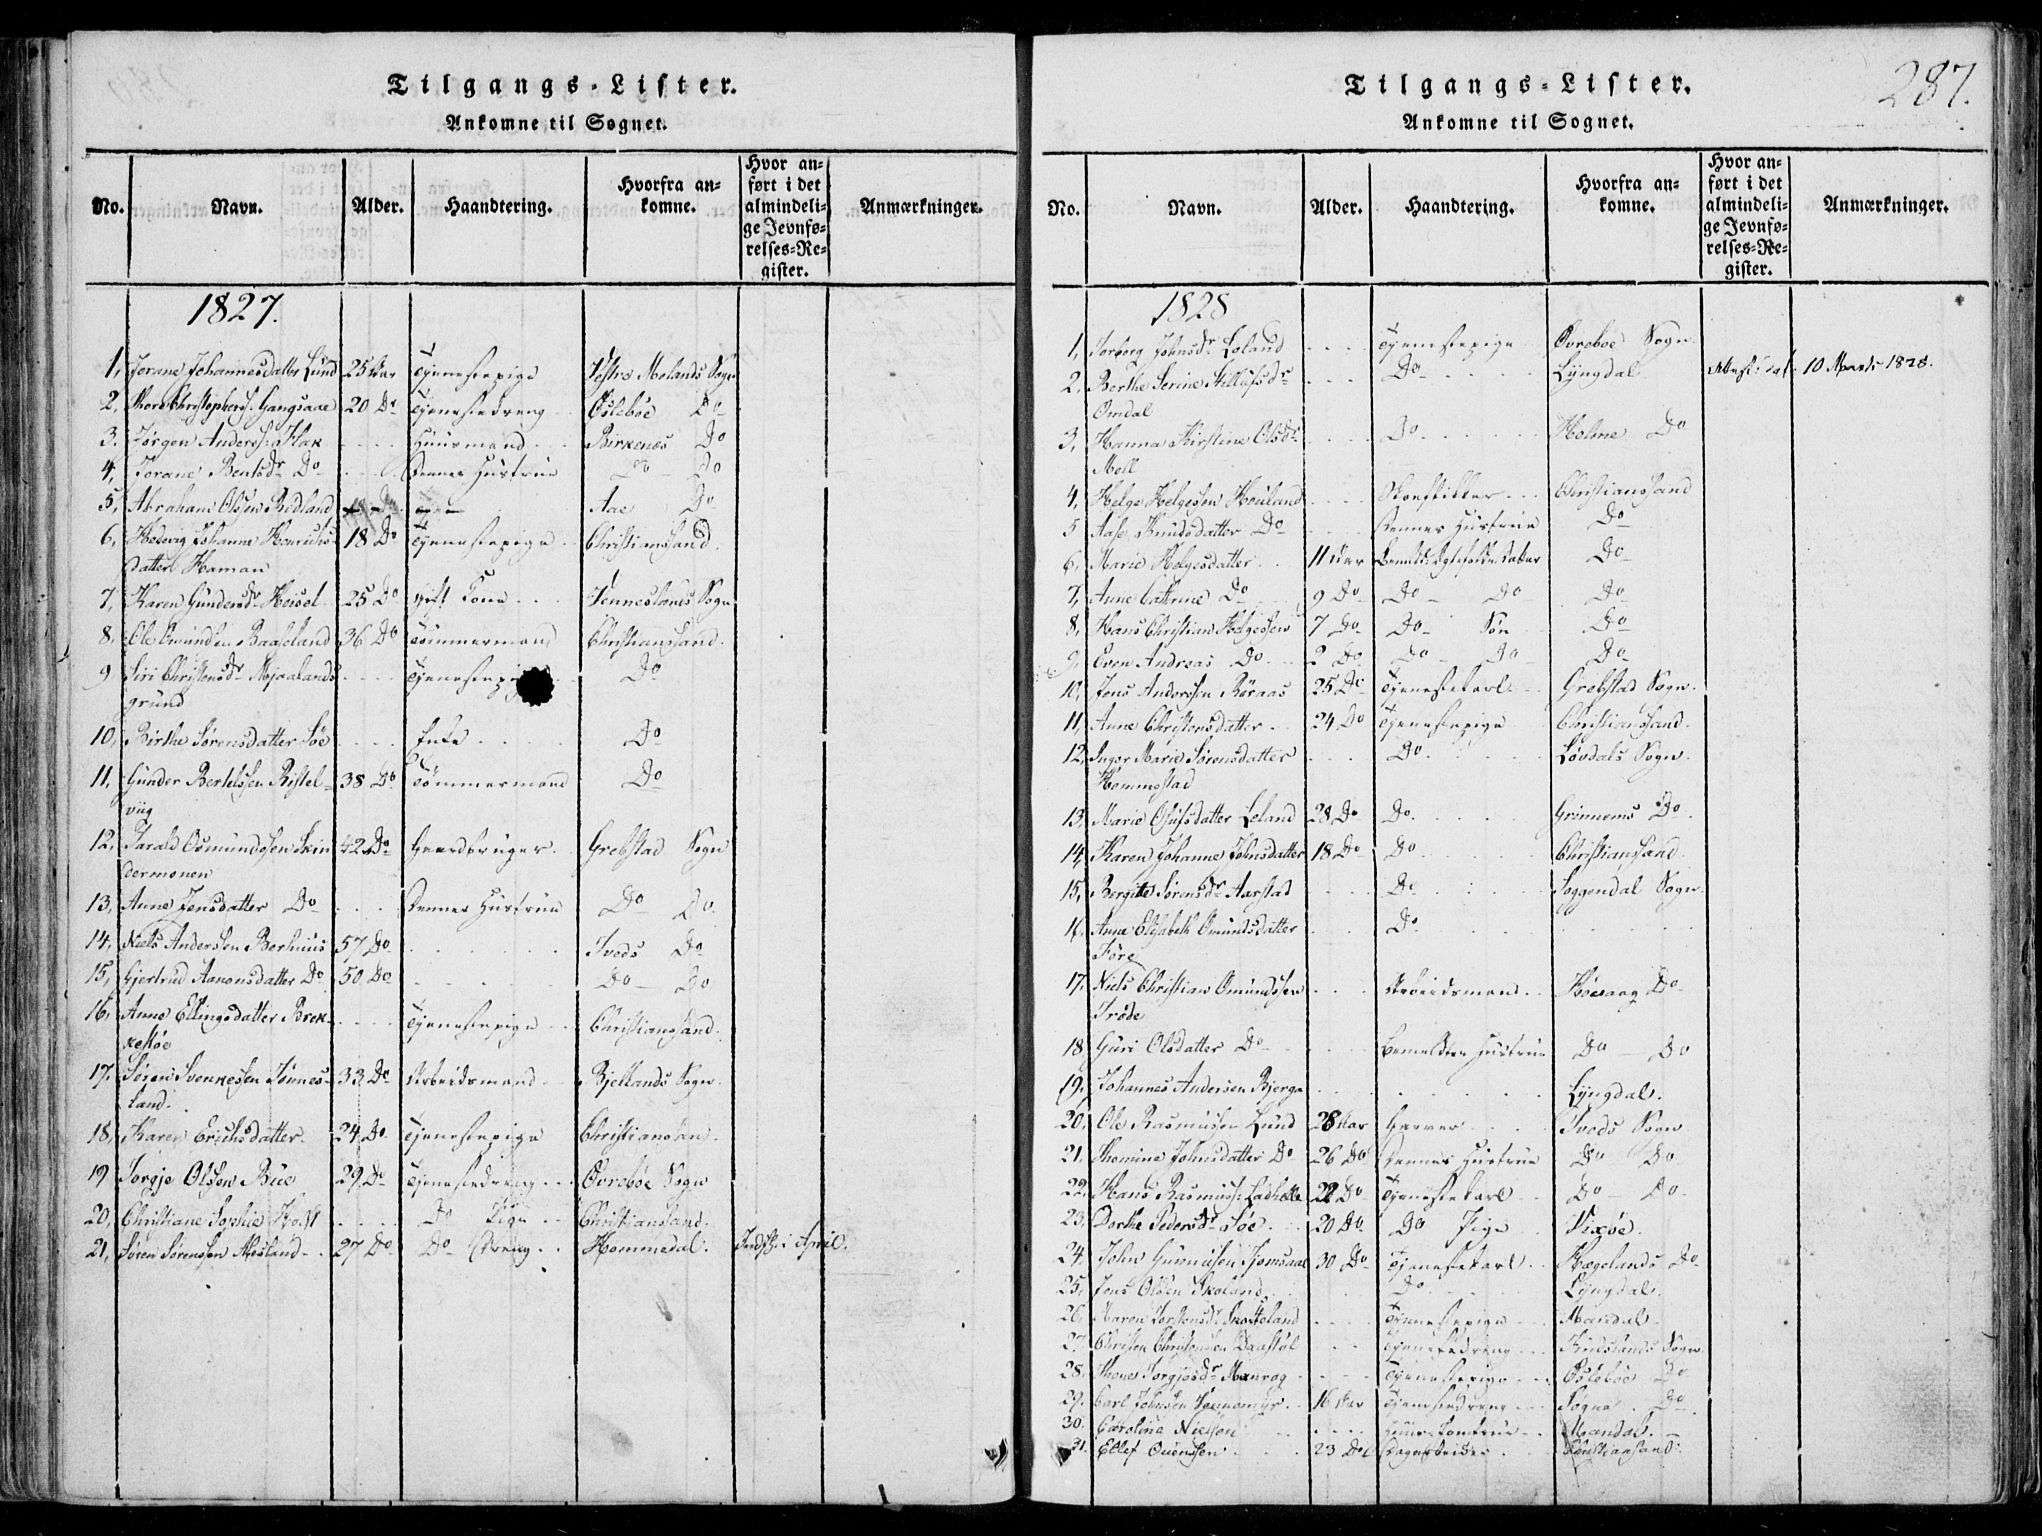 Tilgangs-Lister.
Ankomne til Sognet.
No. Navn. Alder. Haandtering. Hvorfra ankomne. Hvor anført i det almindelige Jevnførelses-Register. Anmærkninger.
1827.
1, Jorane Johannesdatter Lund 25 Aar Tjenestepige Vestre Molands Sogn
2, Thore Christophers. Gangsaae 20 Do Tjenestedreng Oslebøe Do
3. Jørgen Anders: Flak Huusmand Birkenes Do
4, Jorane Bentsdr Do Dennes Hustrue Do Do
5, Abraham Olsen Birkland Aae Do
6, Hedevig Johanne Henrichs- 18 Do Tjenestepige Christianssand.
datter Haman
7, Karen Gundersdr Heisel 25 Do Gift Kone Venneslands Sogn
8, Ole Omundsen Baaseland 36 Do Tømmermand Christianssand.
9 Siri Christensdr Mjaalands Tjenestepige Do
grund
10, Birthe Sørensdatter Søe Enke Do
11, Gunder Bertelssen Ristel- 38 Do Tømmermand Do
viig
12, Tarald Osmundssen Skin 42 Do Gaardbruger Grebstad Sogn
dermonen
13, Anne Jensdatter Do Dennes Hustrue Do Do
14, Niels Andersen Berhuus 57 Do Iveds Do
15, Gjertrud Aanonsdatter Do 50 Do Do Do
16, Anne Ellingsdatter Brek- Tjenestepige Christianssand.
kestøe
17. Søren Svenkesen Tønnes- 33 Do Arbeidsmand Bjellands Sogn.
land.
18, Karen Erichsdatter 24 Do Tjenestepige Christianssan.
19 Torgje Olsen Bue 29 Do Tjenestedreng Øvrebøe Sogn
20, Christiane Sophie Holst Do Pige Christianssand.
21, Søren Sørenssen Alesland 27 Do Do Dreng Hommedal. Indsk. i April.
287.
Tilgangs-Lister.
Ankomne til Sognet.
No. Navn. Alder. Haandtering. Hvorfra ankomne. Hvor anført i det almindelige Jevnførelses-Register. Anmærkninger.
1828
1, Torborg Johnsdr Loland Tjenestepige Øvreboe Sogn.
2, Berthe Serine Stillufsdr Do Lyngdal 10 Marts 1828.
Omdal
3, Hanna Kirstine Olsdr Do Holme Do
Moll
4, Helge Helgesen Houland Skoeflikker Christianssand
5 Aase Knudsdatter Do Dennes Hustrue Do
6, Marie Helgesdatter 11 Aar Bemeldte Ægtefolks Datter Do
7, Anne Cattrine Do 9 Do Do Do Do
8, Hans Christian Helgessen 7 Do Do Søn Do
9, Even Andreas Do 2 Do Do Do Do
10, Jens Anderssen Røraas 25 Do Tjenestekarl Grebstad Sogn.
11, Anne Christensdatter 24 Do Tjenestepige Christianssand.
12, Inger Marie Sørensdatter Do Løvdals Sogn.
Hommestad
13, Marie Olufsdatter Leland 28 Do Do Grinnems Do.
14, Karen Johanne Johnsdatter 18 Do Do Christianssand.
15, Bergite Sørensdr Aarstad Do Soggendal Sogn
16, Anne Elisabeth Omundsdatter Do
Føre
17, Niels Christian Omundssen Arbeidsmand Høivaag Do
Trøde
18 Guri Olsdatter Do Bemeldtes Hustrue Do Do
19, Johannes Andersen Bjerga Lyngdal.
20, Ole Rasmussen Lund 28 Aar Garver Iveds Sogn
21, Thomine Johnsdatter Do 26 Do Dennes Hustrue Do Do
22, Hans Rasmuss: Ladhelle 22 Do Tjenestekarl Do Do
23, Dorthe Pedersdr Søe 20 Do Do Pige Vixøe.
24, John Gunnulsen Tjomsaas 30 Do Tjenestekarl Hægelands Do
25, Jens Olsen Skoland Do Lyngdal.
26, Maren Torstensdr Skotteland Tjenestepige Mandal
27, Christen Christensen Daastøl Tjenestedreng Findslands Sogn
28, Thone Torgjøsdr Manrog Tjenestepige Oslebøe Do
29. Carl Johnsen 16 Aar Tjenestedreng Søgne Do
30. Carolina Nielsen Mandal.
31. Ellef Ouensen 23 Do Dagarbeider Christianssand.